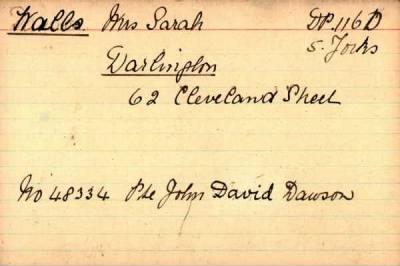 Walls. Mrs Sarah DP. 116 D
5. Yorks
Darlington
62 Cleveland Street
No 48334 Pte John David Dawson